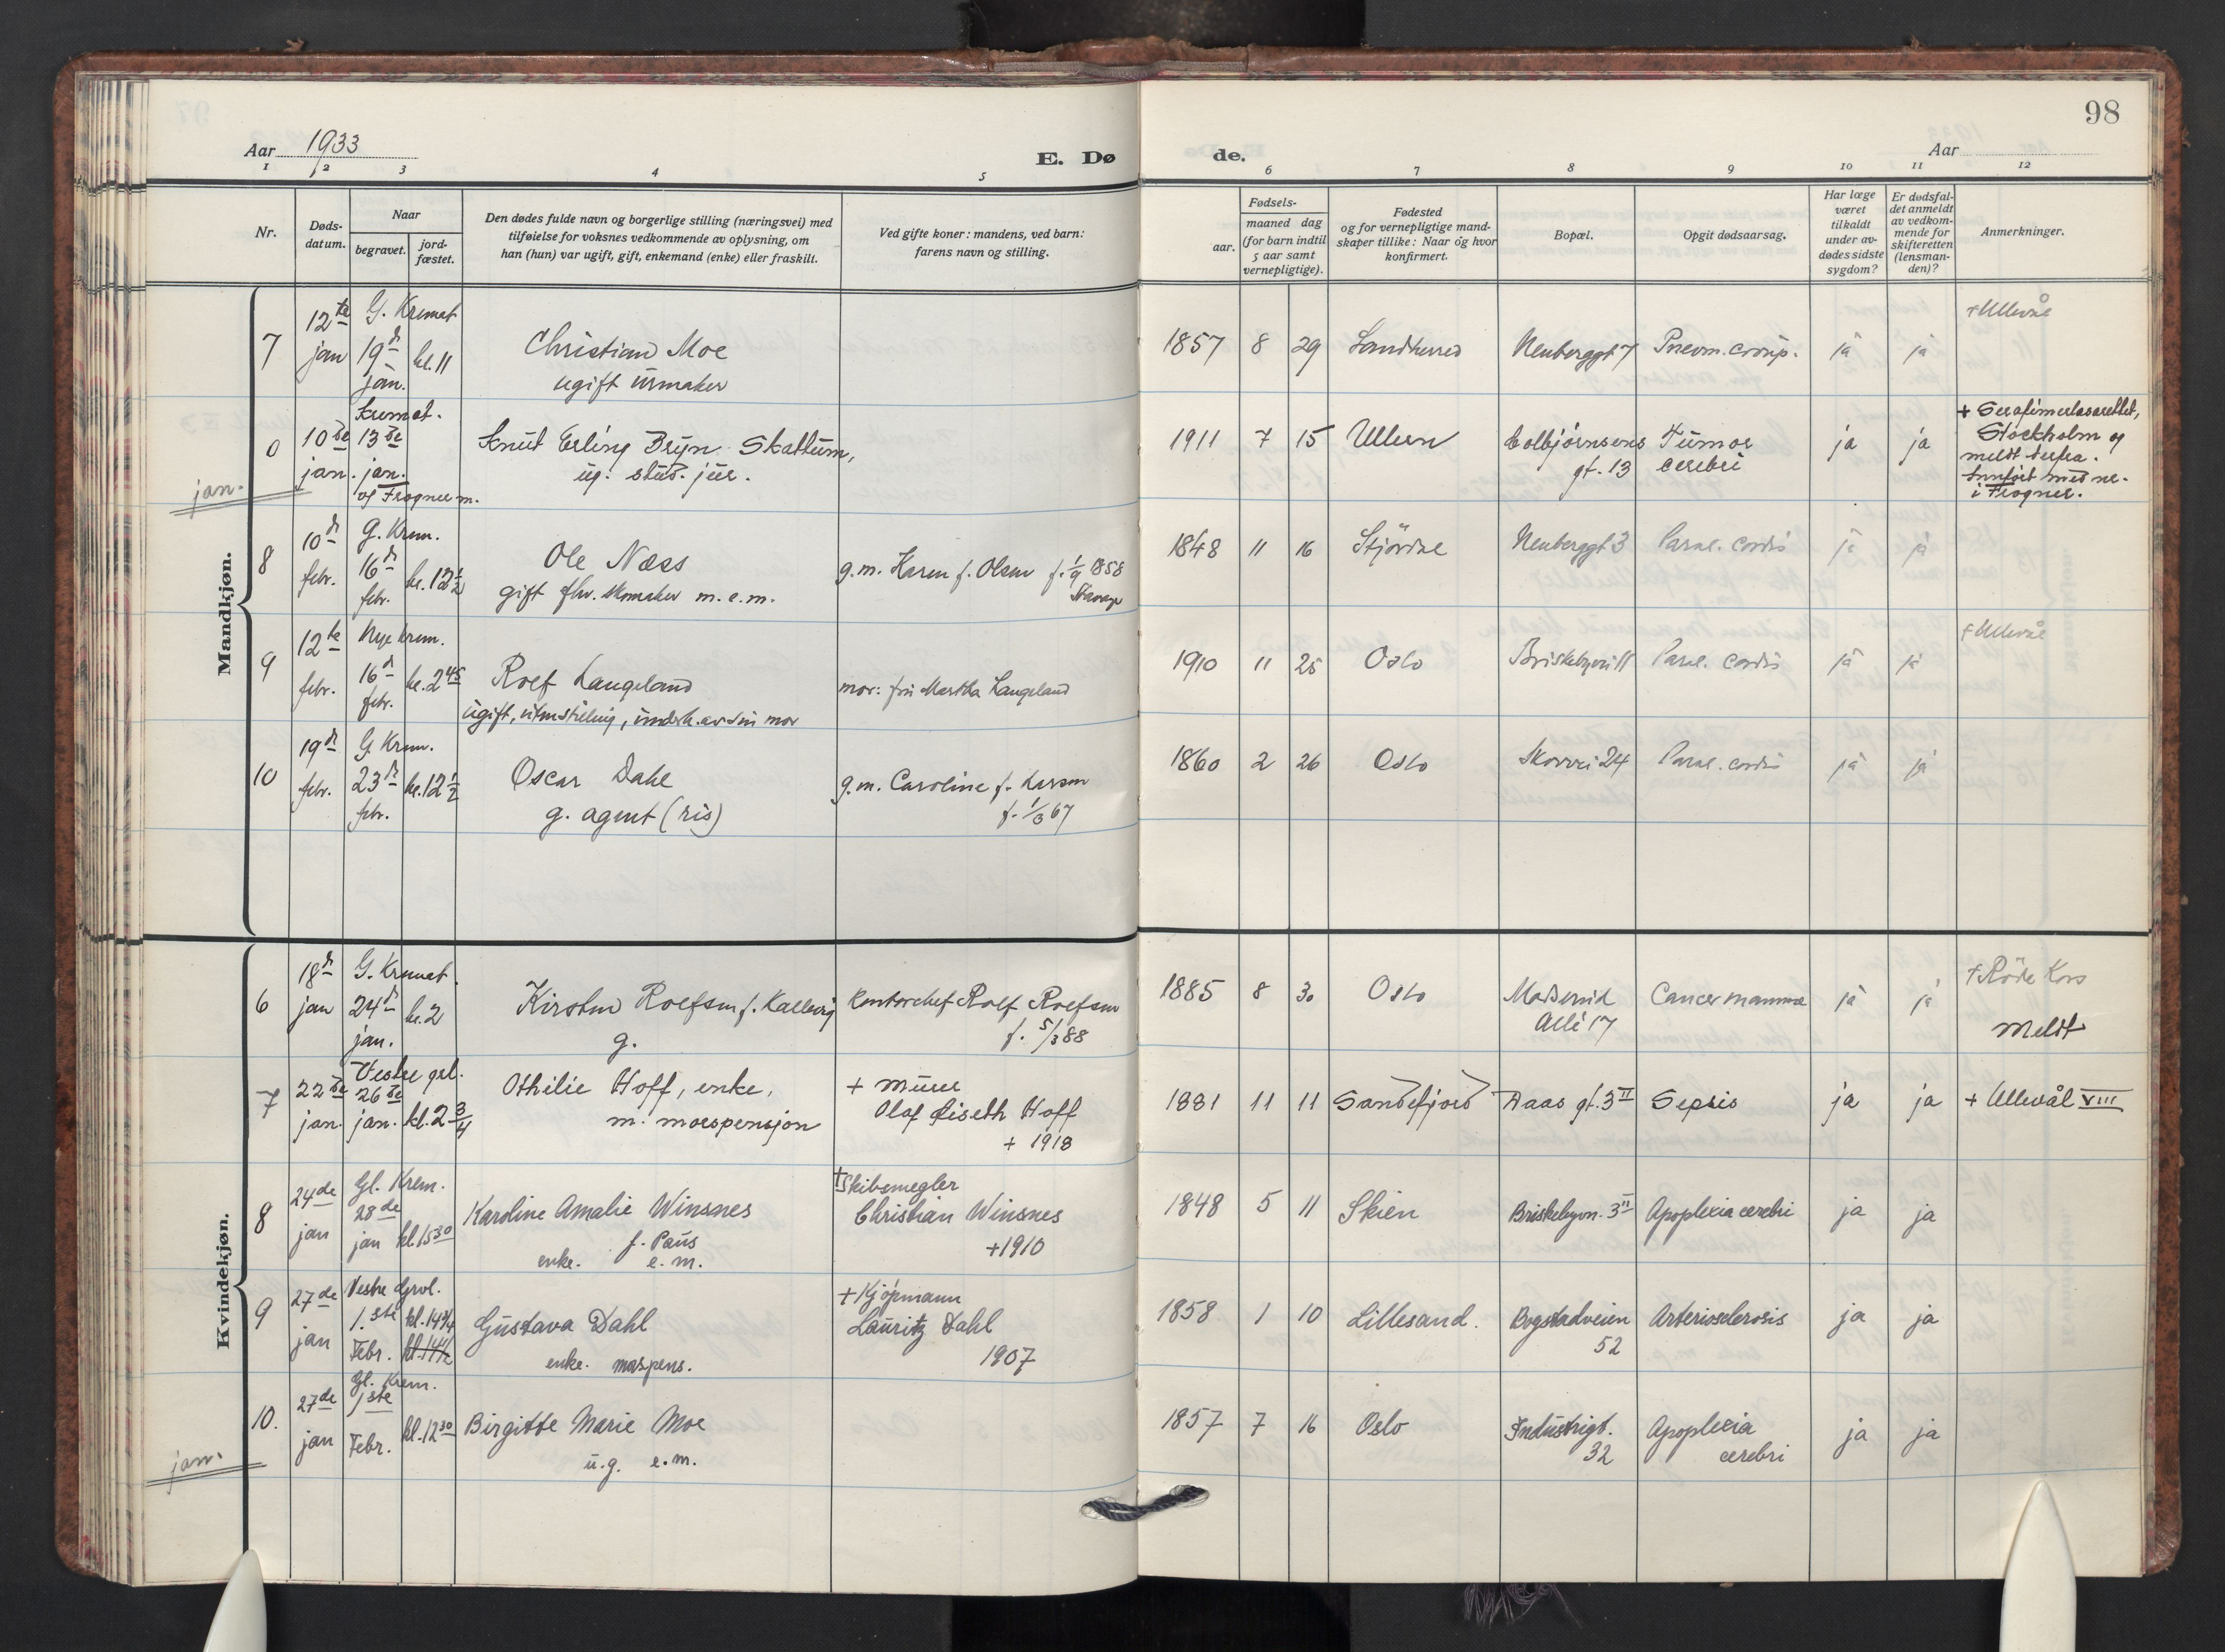 98
Aar 1933
E. Dø
de.
Aar
1 2 3 4 5 6 7 8 9 10 11 12
Nr.
Døds-
datum.
Naar
begravet.
jord-
fæstet.
Den dødes fulde navn og borgerlige stilling (næringsvei) med
tilføielse for voksnes vedkommende av oplysning, om
han (hun) var ugift, gift, enkemand (enke) eller fraskilt.
Ved gifte koner: mandens, ved barn:
farens navn og stilling.
Fødsels-
aar.
maaned dag
(for barn indtil
5 aar samt
vernepligtige).
Fødested
og for vernepligtige mand-
skaper tillike: Naar og hvor
konfirmert.
Bopæl.
Opgit dødsaarsag.
Har læge
været
tilkaldt
under av-
dødes sidste
sygdom?
Er dødsfal-
det anmeldt
av vedkom-
mende for
skifteretten
(lensman-
den)?
Anmerkninger.
Mandkjøn.
7
12te
jan
G. Kremat
19de
jan.
kl. 11
Christian Moe
ugift urmaker
1857 8 29
Neuberggt 7
Pneum. croup.
ja ja
+ Ullevål
0
10de
jan.
Kremat.
13de
jan.
of Frogner m.
Knut Erling Bryn Skattum,
ug. stud. jur.
1911 7 15 Ullern
Colbjørnsens
gt. 13
Tumor
cerebri
ja ja
+ Serafimerlasarettet,
Stockholm og
meldt derfra.
Innført med nr.
i Frogner.
jan.
8
10de
febr.
G. Krem.
16de
febr.
kl. 12½
Ole Næss
gift fhv. skomaker m. e.m.
g.m. Karen f. Olsen f. 1/9 1858
1848 11 16 Stjördal
Neuberggt 3
Paral. cordis
ja ja
9
12te
febr.
Nye krem.
16de
febr.
kl. 2 45
Rolf Langeland
ugift, uten stilling, underh. av sin mor
mor: fru Martha Langeland
1910 11 25 Oslo
Briskebyvei 11
Paral. cordis
ja ja
+ Ullevål
10
19de
febr.
G. Krem.
23de
febr.
kl. 12½
Oscar Dahl
g. agent (ris)
g.m. Caroline f. Larsen
1860 2 26 Oslo
Skovvei 24
Paral. cordis
ja ja
Kvindekjøn.
6
18de
jan
G. Kremat.
24de
jan.
kl. 2
Kirsten Roefsen f. Kallevig
g.
Kontorchef Rolf Roefsen
f. 5/3 88
1885 8 30 Oslo
Madserud
Allé 17
Cancer mammae
ja ja
+ Röde Kors
Meldt
7
22de
jan.
Vestre grl.
26de
jan.
kl. 2¾
Othilie Hoff, enke,
m. morspensjon
+ murer
Olaf Liseth Hoff
+ 1918
1881 11 11 Sandefjord
Aaas gt. 3 II
Sepsis
ja ja
+ Ullevål VIII
8
24de
jan
Gl. Krem.
28de
jan
kl. 15 30
Karoline Amalie Winsnes
f. Paus
enke. e. m.
+ Skibsmegler
Christian Winsnes
+ 1910
1848 5 11 Skien
Briskebyvn. 3 II
Apoplexia cerebri
ja ja
9
27de
jan
Vestre Grvl.
1.ste
Febr.
kl. 14¾
kl. 14½
Gustava Dahl
enke. morspens.
+ Kjøpmann
Lauritz Dahl
1907
1858 1 10 Lillesand.
Bogstadveien
52
Arteriosclerosis
ja ja
10.
27de
jan
Gl. Krem.
1ste
Febr.
kl. 12 30
Birgitte Marie Moe
u.g. e.m.
1857 7 16 Oslo
Industrigt.
32
Apoplexia
cerebri
ja ja
jan.